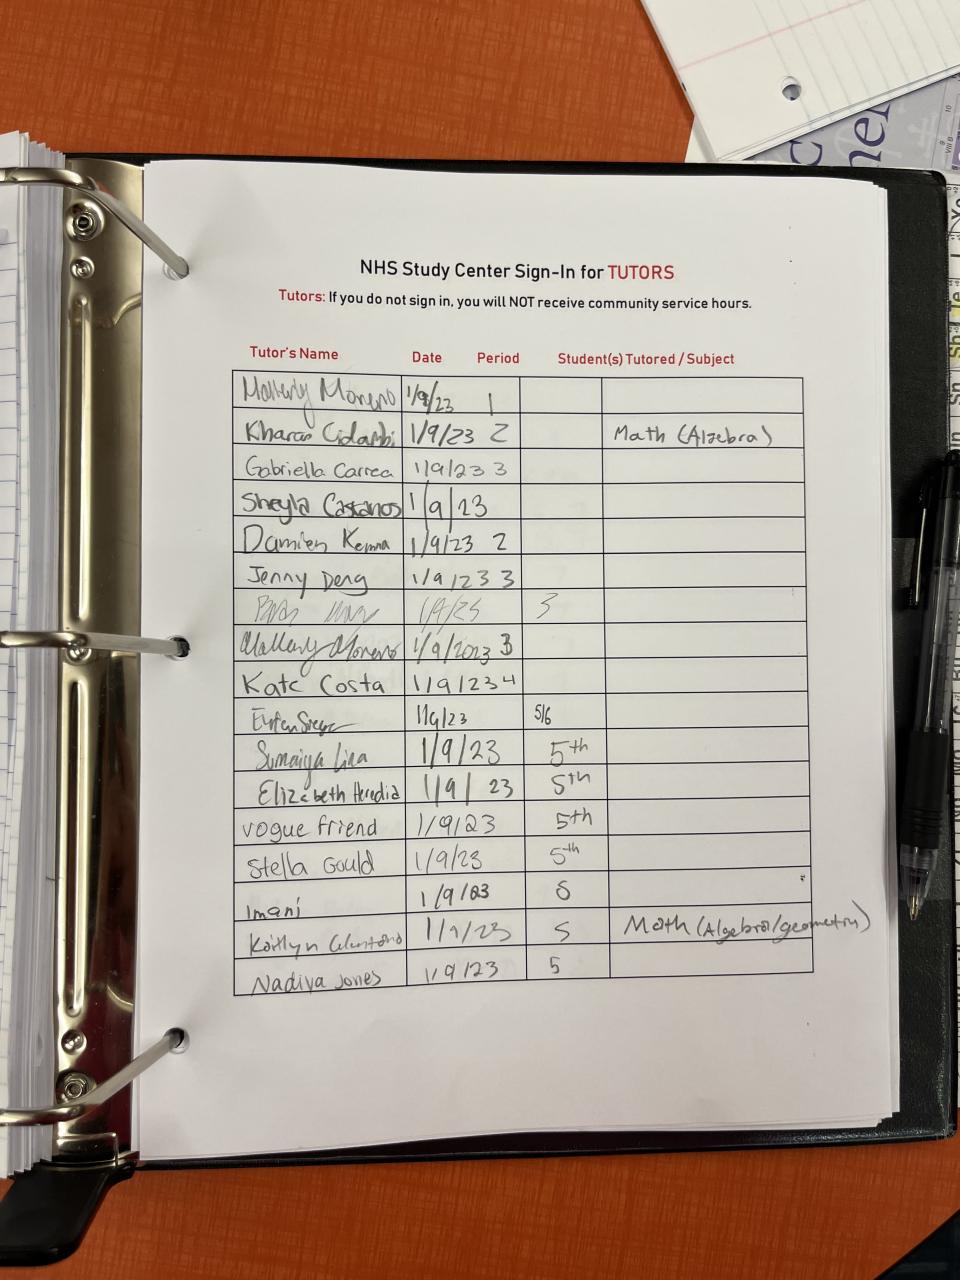 NHS Study Center Sign-In for TUTORS
Tutors: If you do not sign in, you will NOT receive community service hours.
Tutor's Name Date Period Student(s) Tutored / Subject
Mallerly Moreno 1/9/23 1
Kharan 1/9/23 2 Math (Algebra)
Gabriella Carrea 1/9/23 3
Sheyla Castanos 1/9/23
Damien 1/9/23 2
Jenny Deng 1/9/23 3
3
Mallerly Moreno 1/9/2023 3
Kate Costa 1/9/23 4
1/9/23 5/6
Sumaiya Lira 1/9/23 5th
Elizabeth Heredia 1/9/23 5th
vogue friend 1/9/23 5th
Stella Gould 1/9/23 5th
Imani 1/9/23 5
Kaitlyn 1/9/23 5 Math (Algebra/geometry)
Nadiya Jones 1/9/23 5